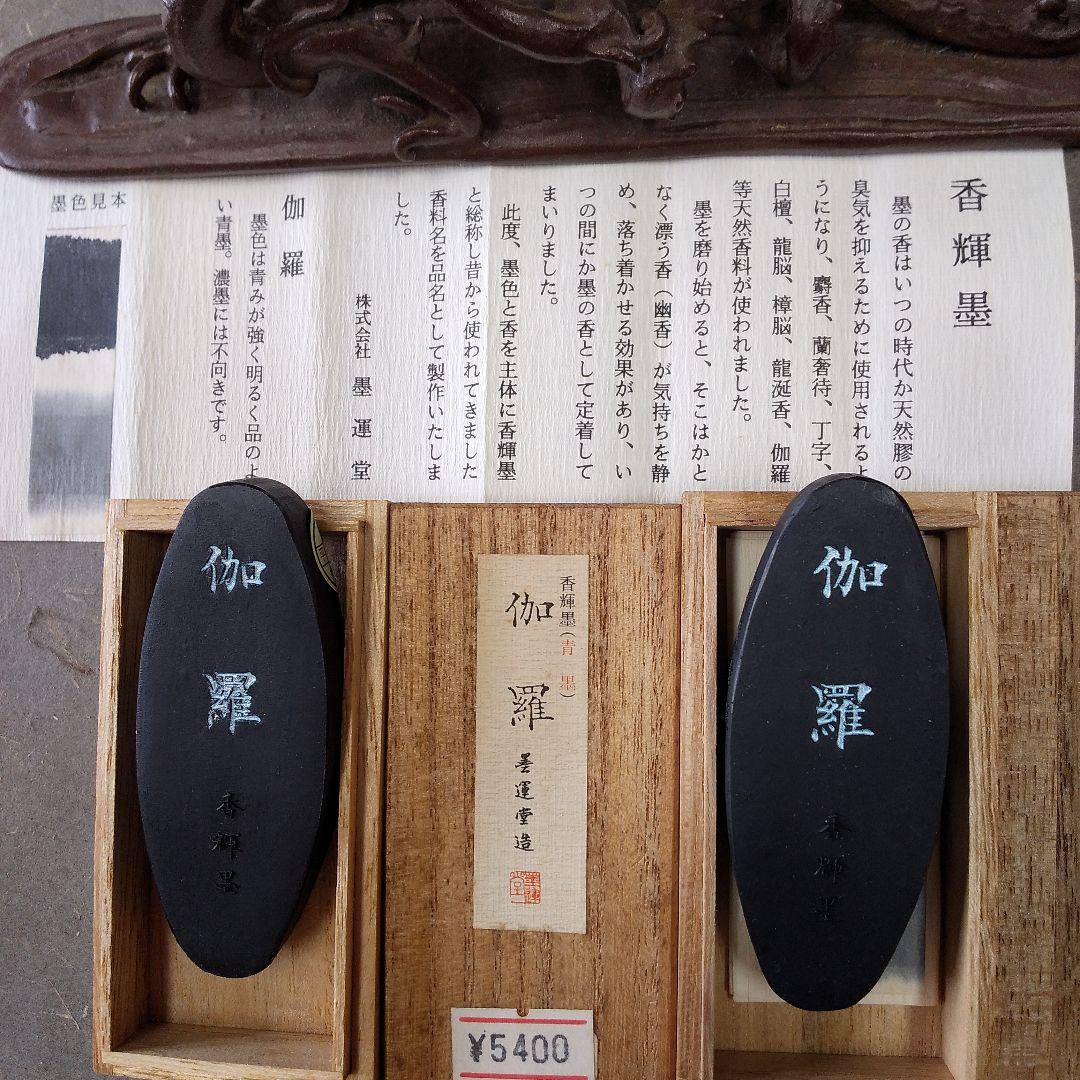 香輝墨
墨の香はいつの時代か天然膠の
臭気を抑えるために使用されるよ
うになり、麝香、蘭奢待、丁字、
白檀、龍脳、樟脳、龍涎香、伽羅
等天然香料が使われました。
墨を磨り始めると、そこはかと
なく漂う香（幽香）が気持ちを静
め、落ち着かせる効果があり、い
つの間にか墨の香として定着して
まいりました。
此度、墨色と香を主体に香輝墨
と総称し昔から使われてきました
香料名を品名として製作いたしま
した。
株式会社 墨運堂
伽羅
墨色は青みが強く明るく品のよ
い青墨。濃墨には不向きです。
墨色見本
伽羅
香輝墨
香輝墨(青墨)
伽羅
墨運堂造
墨運堂
¥5400
伽羅
香輝墨